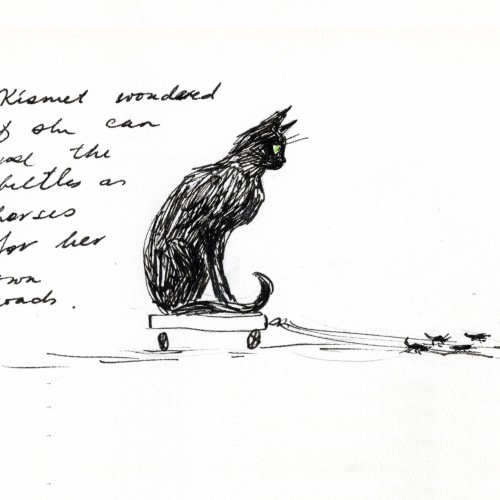 Kismet wondered
if she can
use the
beltles as
horses
for her
own
roads.